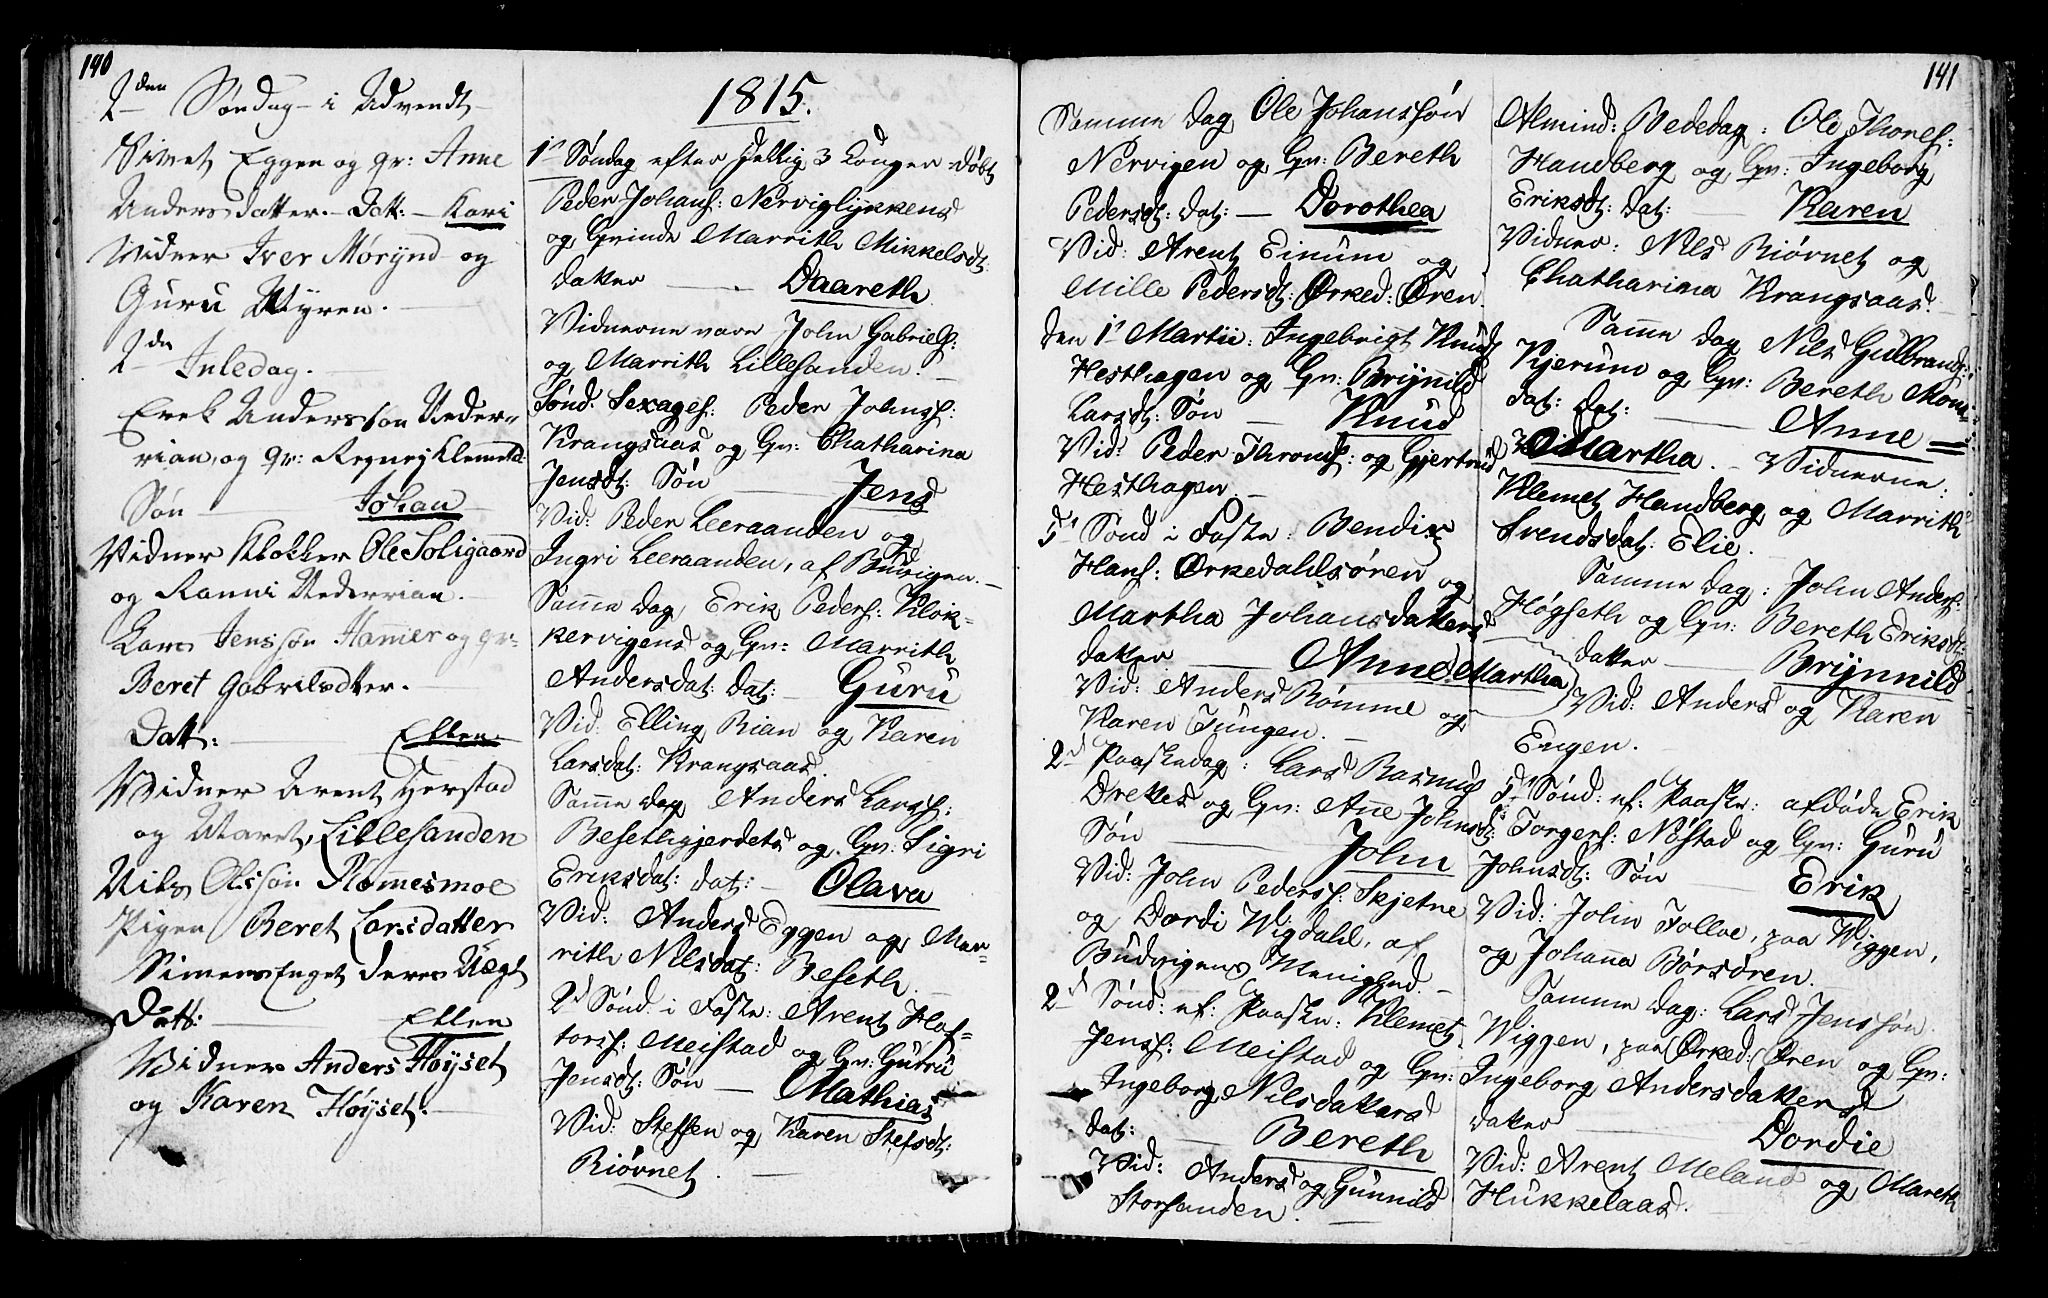 140
2den Søndag i Advendt
Sivert Eggen og qv: Anne
Anders datter. – Datt: – Kari
Widner Iver Mørynd og
Guru Myren. –
2den Juledag. –
Erek Andersson Neder-
rian, og qv: Regnej Klemetd:
Søn – Johan
Vidner Klokker Ole Soligaard
og Ranni Nederrian. –
Lars Jenssøn Hamer og qv:
Beret Gabrilsdtter. –
Datt: – Ellen
Widner Arent Herstad
og Maret Lillesanden
Nils Olssøn Rommesmoe
Pigen Beret Larsdatter
Simens Enget deres Uægt
Datt: – Ellen
Widner Anders Høyset
og Karen Høyset. –
1815.
1s Søndag efter Hellig 3 Konger døbt
Peder Johans: Nerviglykkens
og Qvinde Marrith Mikkelsdt:
datter – Daareth
Vidnerne vare John Gabriels:
og Marrith Lillesanden. –
Sønd. Sexages: Peder Johns:
Krangsaas og Qv: Chatharina
Jensdt: Søn – Jens
Vid: Peder Leeraanden og
Ingri Leeraanden, af Buvigen. –
Samme dag Erik Peders: Klok-
kervigens og Qv: Marrith
Andersdat: dat: – Guru
Vid: Elling Rian og Karen
Larsdat: Krangsaas.
Samme dag Anders Larss:
Besethgjerdets og Qv: Sigri
Eriksdat: dat: – Olava
Vid: Anders Eggen og Mar-
rith Nilsdat: Beseth. –
2d Sønd: i Faste: Arent Haf-
torss: Meistad og Qv: Guru
Jensdt: Søn – Mathias
Vid: Steffen og Karen Stefsdt:
Riøvnet. –
141
Samme dag Ole Johanssøn
Nervigen og Qv: Bereth
Pedersdt: dat: – Dorothea
Vid: Arent Einum og
Mille Pedersdt: Ørked: Øren.
den 1s Martii: Ingebrigt Knuds
Hesthagen og Qv: Brynild
Larsdt: Søn – Knud
Vid: Peder Thronds: og Gjertrud
Hesthagen –
5d Sønd i Faste: Bendix
Hans: Ørkedahlsøren og
Martha Johansdatters
datter – Anne Martha
Vid: Anders Rømme og
Karen Tungen. –
2d Paaskedag: Lars Rasmus
Drekes og Qv: Ane Johnsdt:
Søn – John
Vid: John Peders: Skjetne
og Dordi Wigdahl, af
Budvigens Menighed. –
2d Sønd: ef: Paaske: Klemet
Jenss: Meistad og Qv:
Ingeborg Nilsdatters
dat: – Bereth
Vid: Anders og Gunnild
Storsanden. –
Almind: Bededag: Ole Thones:
Handberg og Qv: Ingeborg
Eriksdt: dat: – Karen
Vidner: Nils Riøvnet og
Chatharina Krangsaas –
Samme dag Nils Gulbrands:
Kjerum og Qv: Bereth Mons-
dat: dat: – Anne =
Martha. – Vidnerne:
Klemet Handberg og Marrith
Svendsdat: Elie. –
Samme dag: John Anders:
Høgseth og Qv: Bereth Eriksdt:
datter – Brynnild
Vid: Anders og Karen
Engen. –
5d Sønd: ef: Paaske: afdøde Erik
Torgers: Nøstad og Qv: Guru
Johnsdt: Søn – Erik
Vid: John Folloe, paa Wiggen,
og Johanna Børsøren.
Samme dag: Lars Jenssøn
Wiggen, paa Ørked: Øren og Qv:
Ingeborg Andersdatters
datter – Dordie
Vid: Arent Meland og Mareth
Hukkelaas. –